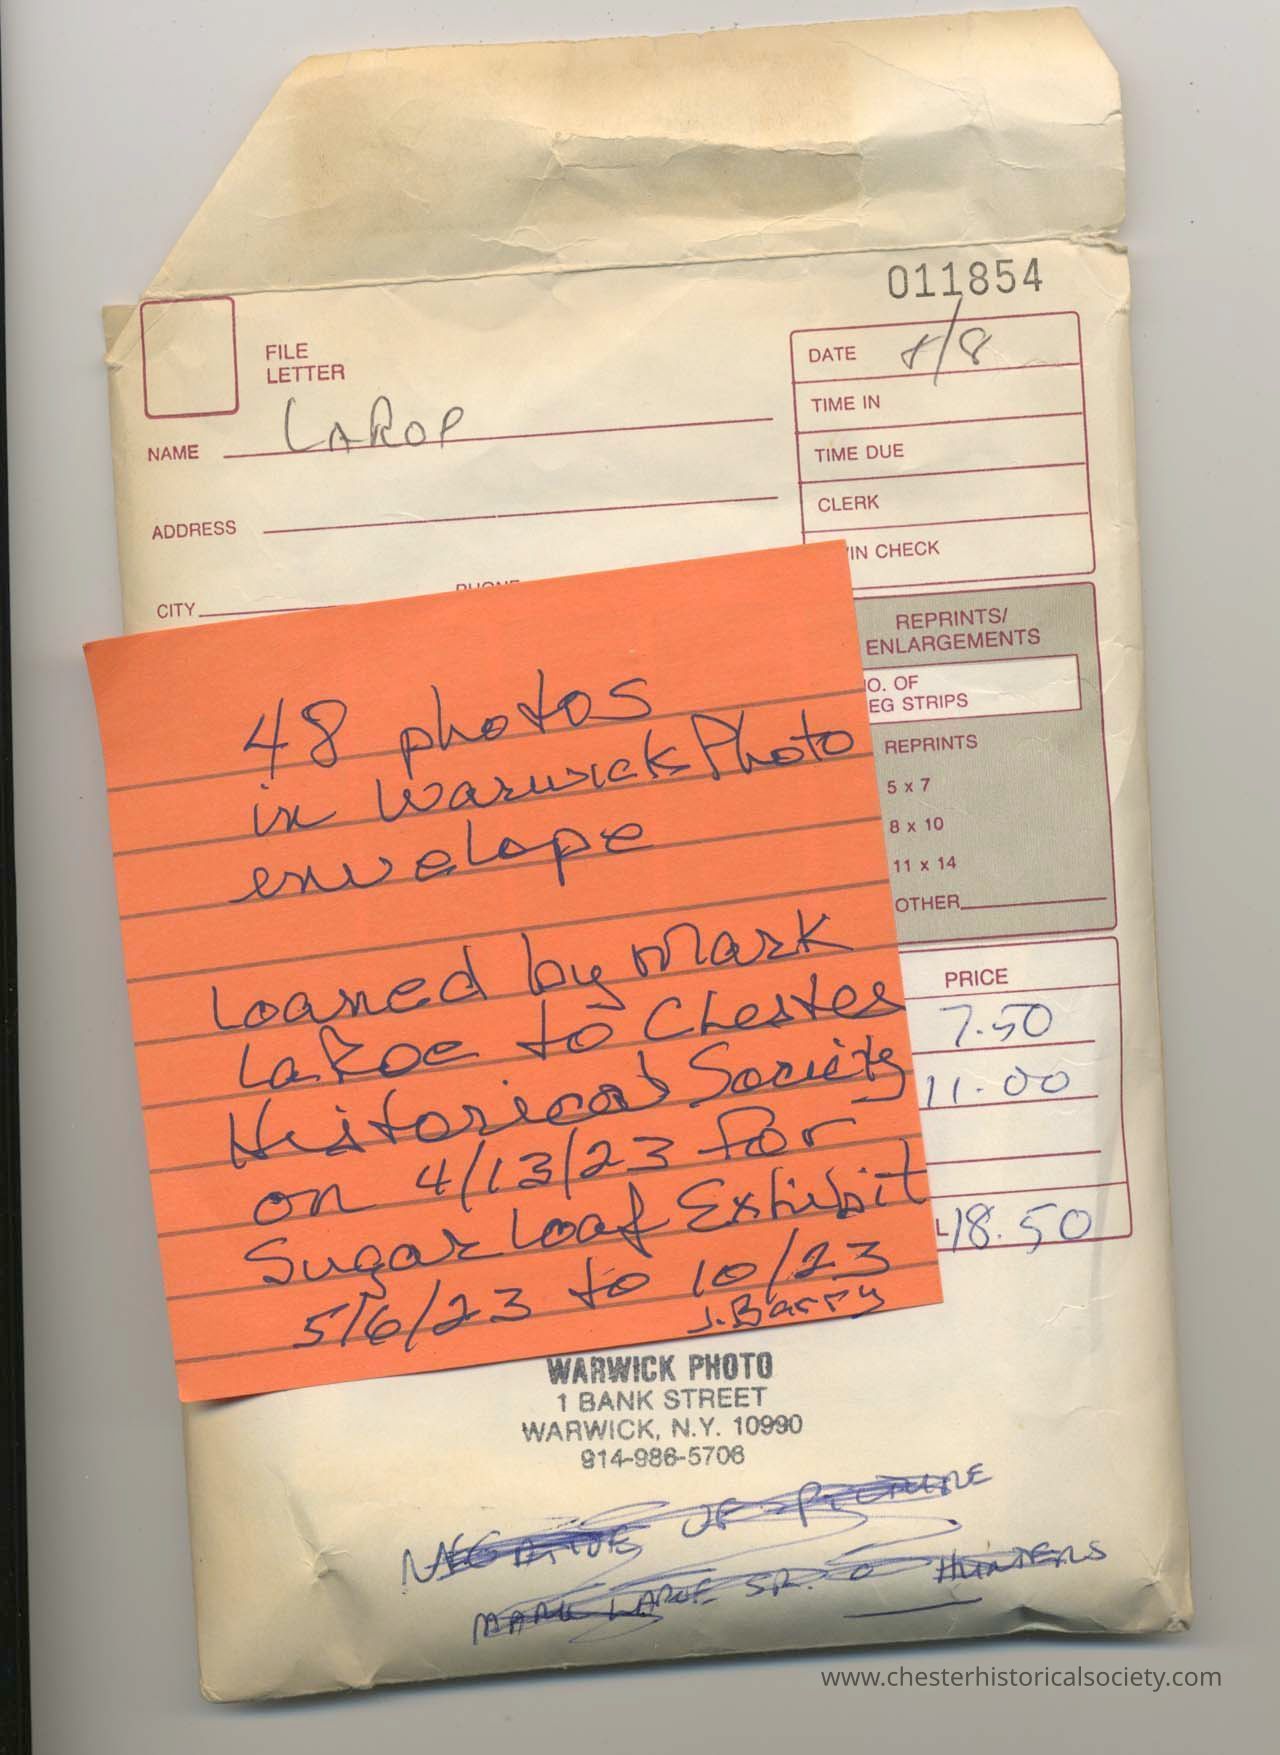 011854
FILE
LETTER
DATE
TIME IN
TIME DUE
CLERK
IN CHECK
NAME LAROP
ADDRESS
CITY
PHONE
REPRINTS/
ENLARGEMENTS
O. OF
EG STRIPS
REPRINTS
5 x 7
8 x 10
11 x 14
OTHER
PRICE
7.50
11.00
L 18.50
48 photos
in Warwick Photo
envelope
Loaned by Mark
LaRoe to Chester
Historical Society
on 4/13/23 for
Sugar Loaf Exhibit
5/6/23 to 10/23
J. Barry
WARWICK PHOTO
1 BANK STREET
WARWICK, N.Y. 10990
914-986-5706
NEGATIVE OF PICTURE
MARK LAROE SR. HUNTERS
www.chesterhistoricalsociety.com